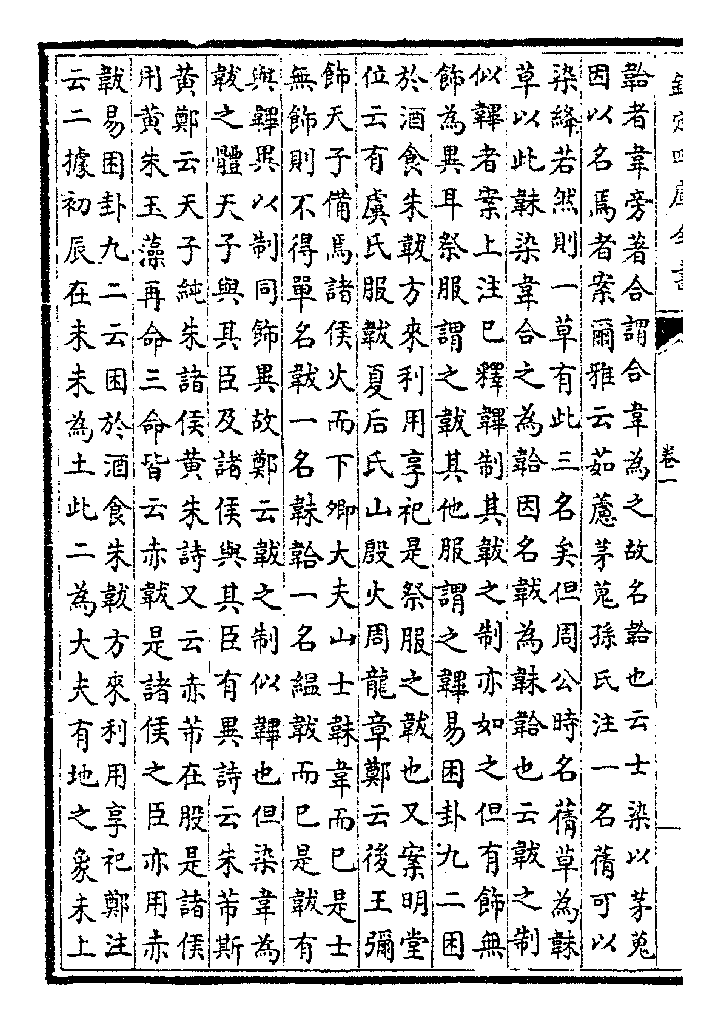 欽定四庫全書
卷一
韐者韋旁著合謂合韋為之故名韐也云士染以茅蒐
因以名焉者案爾雅云茹藘茅蒐孫氏注一名蒨可以
染絳若然則一草有此三名矣但周公時名蒨草為韎
草以此韎染韋合之為韐因名韍為韎韐也云韍之制
似韠者案上注已釋韠制其韍之制亦如之但有飾無
飾為異耳祭服謂之韍其他服謂之韠易困卦九二困
於酒食朱韍方來利用享祀是祭服之韍也又案明堂
位云有虞氏服韍夏后氏山殷火周龍章鄭云後王彌
飾天子備焉諸侯火而下卿大夫山士韎韋而已是士
無飾則不得單名韍一名韎韐一名緼韍而已是韍有
與韠異以制同飾異故鄭云韍之制似韠也但染韋為
韍之體天子與其臣及諸侯與其臣有異詩云朱芾斯
黃鄭云天子純朱諸侯黃朱詩又云赤芾在股是諸侯
用黃朱玉藻再命三命皆云赤韍是諸侯之臣亦用赤
韍易困卦九二云困於酒食朱韍方來利用享祀鄭注
云二據初辰在未未為土此二為大夫有地之象未上